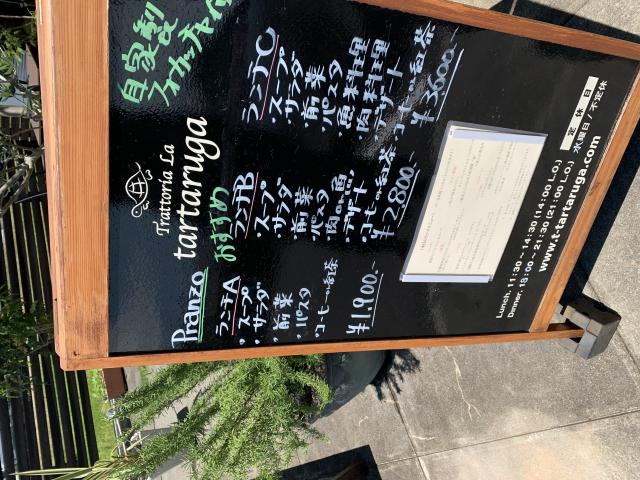 Trattoria La
tartaruga
自家製
フォカッチャ付
Pranzo
ランチA
・スープ
・サラダ
・前菜
・パスタ
・コーヒーor紅茶
¥1,900.-
おすすめ
ランチB
・スープ
・サラダ
・前菜
・パスタ
・肉or魚
・デザート
・コーヒーor紅茶
¥2,800.-
ランチC
・スープ
・サラダ
・前菜
・パスタ
・魚料理
・肉料理
・デザート
・コーヒーor紅茶
¥3600.-
定休日
水曜日/不定休
Lunch. 11:30 ~ 14:30 (14:00 L.O.)
Dinner. 18:00 ~ 21:30 (21:00 L.O.)
www.t-tartaruga.com